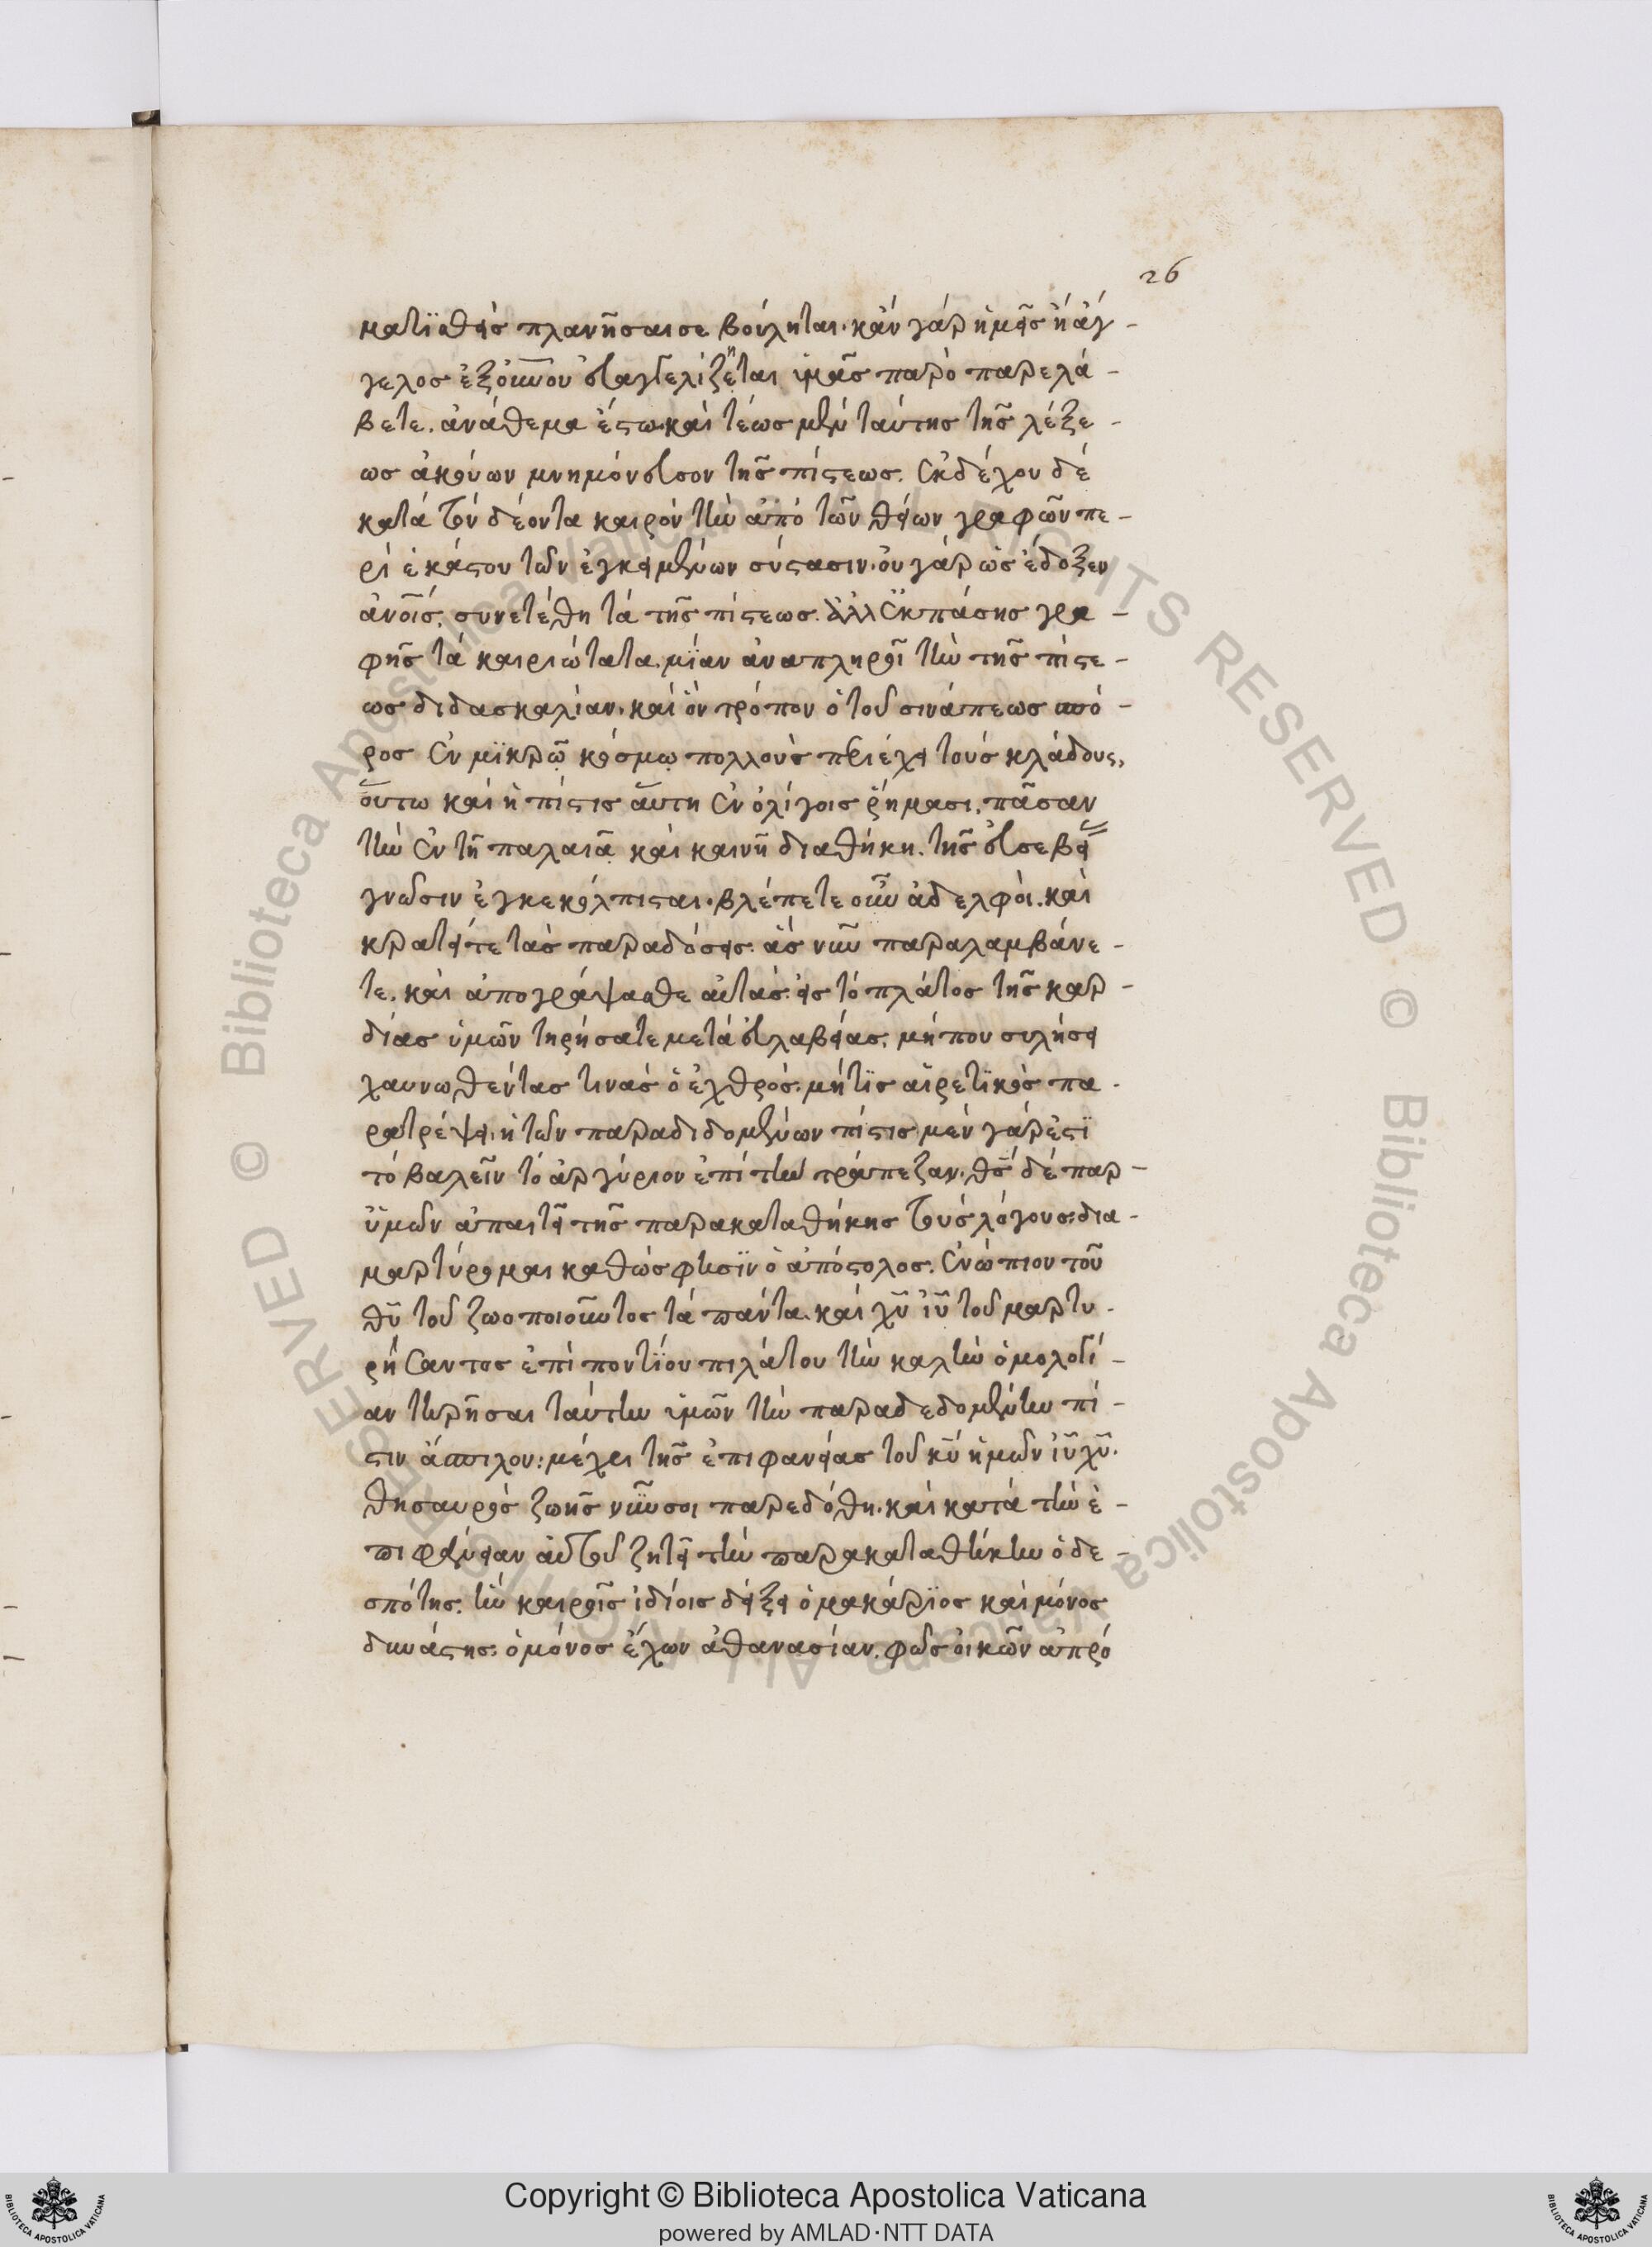 26
ματϊσθεὶς πλανῆσαι σε βούληται. κἂν γὰρ ἡμεῖς ἢ ἄγ-
γελος ἐξ οὐνου εὐαγγελίζηται ὑμᾶς παρ ὃ παρελά-
βετε. ἀνάθεμα ἔστω. καὶ τέως μὲν ταύτης τῆς λέξε-
ως ἀκούων μνημόνευσον τῆς πίστεως. ἐκδέχου δὲ
κατὰ τὸν δέοντα καιρὸν τὴν ἀπὸ τῶν θείων γραφῶν πε-
ρὶ ἑκάστου τῶν ἐγκειμένων σύστασιν. οὐ γὰρ ὡς ἔδοξεν
ἀνοις. συνετέθη τὰ τῆς πίστεως. ἀλλ ἐκ πάσης γρα-
φῆς τὰ καιριώτατα. μΐαν ἀναπληροῖ τὴν τῆς πίστε-
ως διδασκαλίαν. καὶ ὃν τρόπον ὁ τοῦ σινάπεως σπό-
ρος ἐν μϊκρῶ κόσμω πολλοὺς περιέχει τοὺς κλάδους,
οὕτω καὶ ἡ πίστις αὕτη ἐν ὀλίγοις ῥήμασι. πᾶσαν
τὴν ἐν τῆ παλαιᾶ καὶ καινῆ διαθήκη. τῆς εὐσεβείας
γνῶσιν ἐγκεκόλπισται. βλέπετε οὖν ἀδελφοὶ. καὶ
κρατεῖτε τὰς παραδόσεις. ἃς νῦν παραλαμβάνε-
τε. καὶ ἀπογράψασθε αὐτὰς. εἰς τὸ πλάτος τῆς καρ-
δίας ὑμῶν τηρήσατε μετὰ εὐλαβείας. μήπου συλήσει
χαυνωθέντας τινὰς ὁ ἐχθρός. μήτϊς αἱρετϊκὸς πα-
ρατρέψει. ἡ τῶν παραδιδομένων πίστις μὲν γάρ ἐστϊ
τὸ βαλεῖν τὸ ἀργύριον ἐπὶ τὴν τράπεζαν. θς δὲ παρ-
ὑμῶν ἀπαιτεῖ τῆς παρακαταθήκης τοὺς λόγους. δια-
μαρτύρομαι καθώς φησϊν ὁ ἀπόστολος. ἐνώπιον τοῦ
θυ τοῦ ζωοποιοῦντος τὰ πάντα. καὶ χυ ιυ τοῦ μαρτυ-
ρήσαντος ἐπὶ ποντΐου πιλάτου τὴν καλὴν ὁμολογί-
αν τηρῆσαι ταύτην ὑμῶν τὴν παραδεδομένην πί-
στιν ἄσπιλον: μέχρι τῆς ἐπιφανείας τοῦ κυ ἡμῶν ιυ χυ.
θησαυρὸς ζωῆς νῦν σοι παρεδόθη. καὶ κατὰ τὴν ἐ-
πιφάνειαν αὐτοῦ ζητεῖ τὴν παρακαταθήκην ὁ δε-
σπότης. ἣν καιροῖς ἰδίοις δείξει ὁ μακάρϊος καὶ μόνος
δυνάστης. ὁ μόνος ἔχων ἀθανασίαν. φῶς οἰκῶν ἀπρό
© Biblioteca Apostolica Vaticana ALL RIGHTS RESERVED © Biblioteca Apostolica Vaticana ALL RIGHTS RESERVED
Copyright © Biblioteca Apostolica Vaticana
powered by AMLAD·NTT DATA
BIBLIOTECA APOSTOLICA VATICANA
BIBLIOTECA APOSTOLICA VATICANA